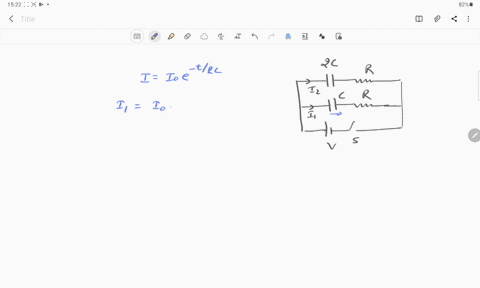 15:22
82%
Title
I = I₀ e^{-t/RC}
I₁ = I₀
2C
R
I₂
C
R
I₁
V
S